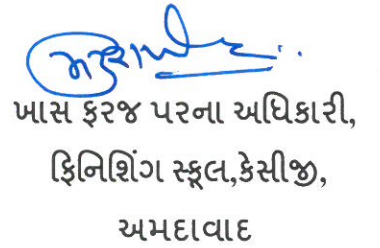 ખાસ ફરજ પરના અધિકારી,
ફિનિશિંગ સ્કૂલ,કેસીજી,
અમદાવાદ